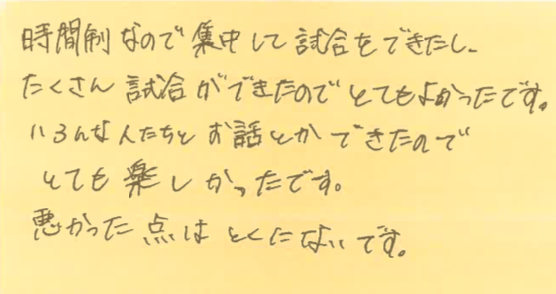 時間制なので集中して試合をできたし、
たくさん試合ができたのでとてもよかったです。
いろんな人たちとお話とかできたので
とても楽しかったです。
悪かった点はとくにないです。